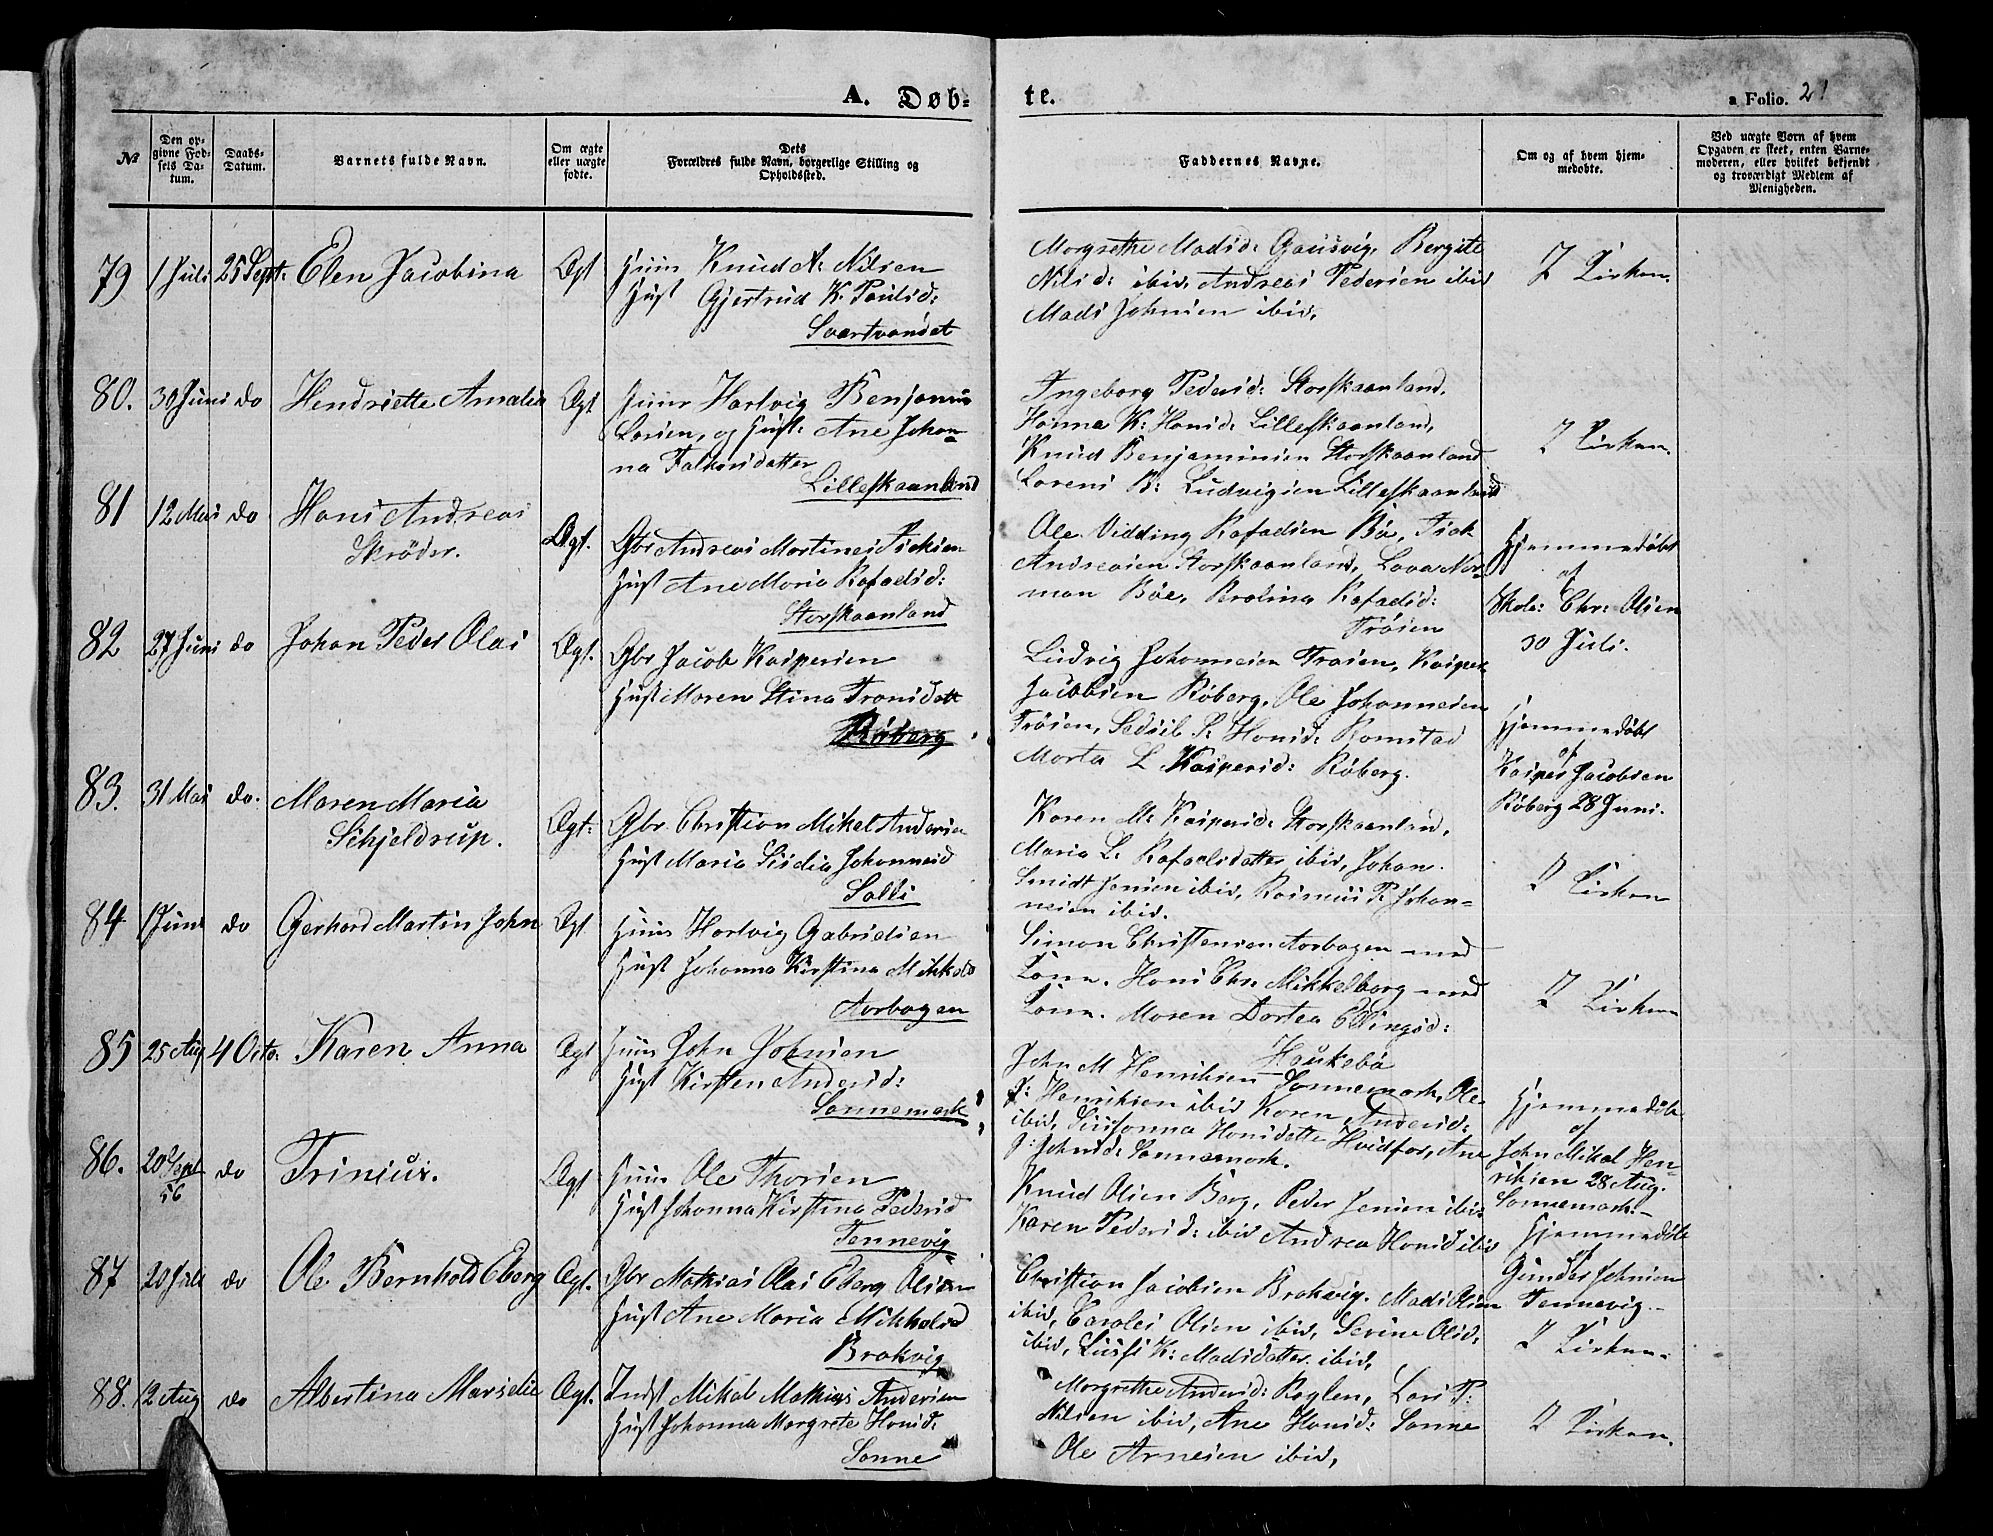 A. Døb-
te.
a Folio. 21
№
Den op-
givne Fød-
sels Da-
tum.
Daabs-
Datum.
Barnets fulde Navn.
Om ægte
eller uægte
fødte.
Dets
Forældres fulde Navn, borgerlige Stilling og
Opholdssted.
Faddernes Navne.
Om og af hvem hjem-
medøbte.
Ved uægte Børn af hvem
Opgaven er skeet, enten Barne-
moderen, eller hvilket bekjendt
og troværdigt Medlem af
Menigheden.
79 1 Juli 25 Sept: Elen Jacobina Ægt
Huus Knud A: Nilsen
Hust Gjertrud K. Paulsd:
Svartvandet
Margrethe Madsd: Gausvig, Bergite
Nilsd: ibid, Andreas Pedersen ibid
Mads Johnsen ibid,
I Kirken.
80. 30 Juni do Hendriette Amalia Ægt
Huus Hartvig Benjamin
Larsen, og Hust: Ane Johan-
na Falksdatter
Lilleskaanland
Ingeborg Pedersd: Storskaanland,
Hanna K: Hansd: Lilleskaanland,
Knud Benjaminsen Storskaanland
Lorens B: Ludvigsen Lilleskaanland
I Kirken.
81 12 Mai do Hans Andreas
Skrøder.
Ægt.
Gbr Andreas Martines Isaksen
Hust Ane Maria Rafaelsd:
Storskaanland
Ole Vidding Rafaelsen Bø, Isak
Andreasen Storskaanland, Lava Nor-
man Bøe, Berolina Rafaelsd:
Trøsen
Hjemmedøbt
af
Skolel: Chr: Olsen
30 Juli.
82 27 Juni do Johan Peder Olai Ægt.
Gbr Jacob Kaspersen
Hust Maren Stina Transdatt
Røberg
Ludvig Johannesen Trasen, Kasper
Jacobsen Røberg, Ole Johannesen
Trøsen, Sedsil P. Hansd: Ramstad
Marta L Kaspersd: Røberg.
Hjemmedøbt
af
Kasper Jacobsen
Røberg 28 Juni.
83. 31 Mai do. Maren Maria
Schjeldrup.
Ægt:
Gbr. Christian Mikal Andersen
Hust Maria Sisilia Johannesd
Salli
Karen M: Kaspersd: Storskaanland,
Maria L: Rafaelsdatter ibid, Johan
Smidt Jensen ibid, Rasmus P. Johan-
nesen ibid.
I Kirken
84 1 Juni do Gerhard Martin John Ægt
Huus Hartvig Gabrielsen
Hust Johanna Kirstina Mikkelsd
Aarbogen
Simon Christensen Aarbogen med
Kone. Hans Chr: Mikkelborg med
Kone. Maren Dortea Ellingsd:
Haukebø
I Kirken
85 25 Aug 4 Octo: Karen Anna Ægt
Huus John Johnsen
Hust Kirsten Andersd:
Sannemark
John M Henriksen Sannemark, Ole
P: Henriksen ibid Karen Andersd:
ibid, Susanna Hansdatter Hvidfor, Ane
J: Johnsd: Sannemark.
Hjemmedøbt
af
John Mikal Hen-
riksen 28 Aug.
Sannemark.
86. 20 Sept
56
do Trinius. Ægt
Huus Ole Thorsen
Hust Johanna Kirstina Pedersd
Tennevig
Knud Olsen Berg, Peder Jensen ibid
Karen Pedersd: ibid Andrea Hansd ibid
Hjemmedøbt
af
Gunder Johnsen
Tennevig.
87 20 Juli do Ole Bernhold Eberg Ægt.
Gbr Mathias Olai Eberg Olsen
Hust Ane Maria Mikkelsd
Brokvig
Christian Jacobsen Brokvig. Mads Olsen
ibid, Carolis Olsen ibid, Serine Olsd:
ibid, Lussi K: Madsdatter ibid,
I Kirken.
88. 12 Aug do Albertina Marselie Ægt.
Indst Mikal Mathias Andersen
Hust Johanna Margrete Hansd:
Sanne
Margrethe Andersd: Røglen, Lars P:
Nilsen ibid, Ane Hansd: Sanne
Ole Arnesen ibid,
I Kirken.